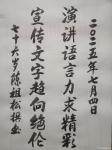 二〇二五年七月四日
演讲语言力求精彩
宣传文字趋向绝伦
七十六岁陈祖松撰并书